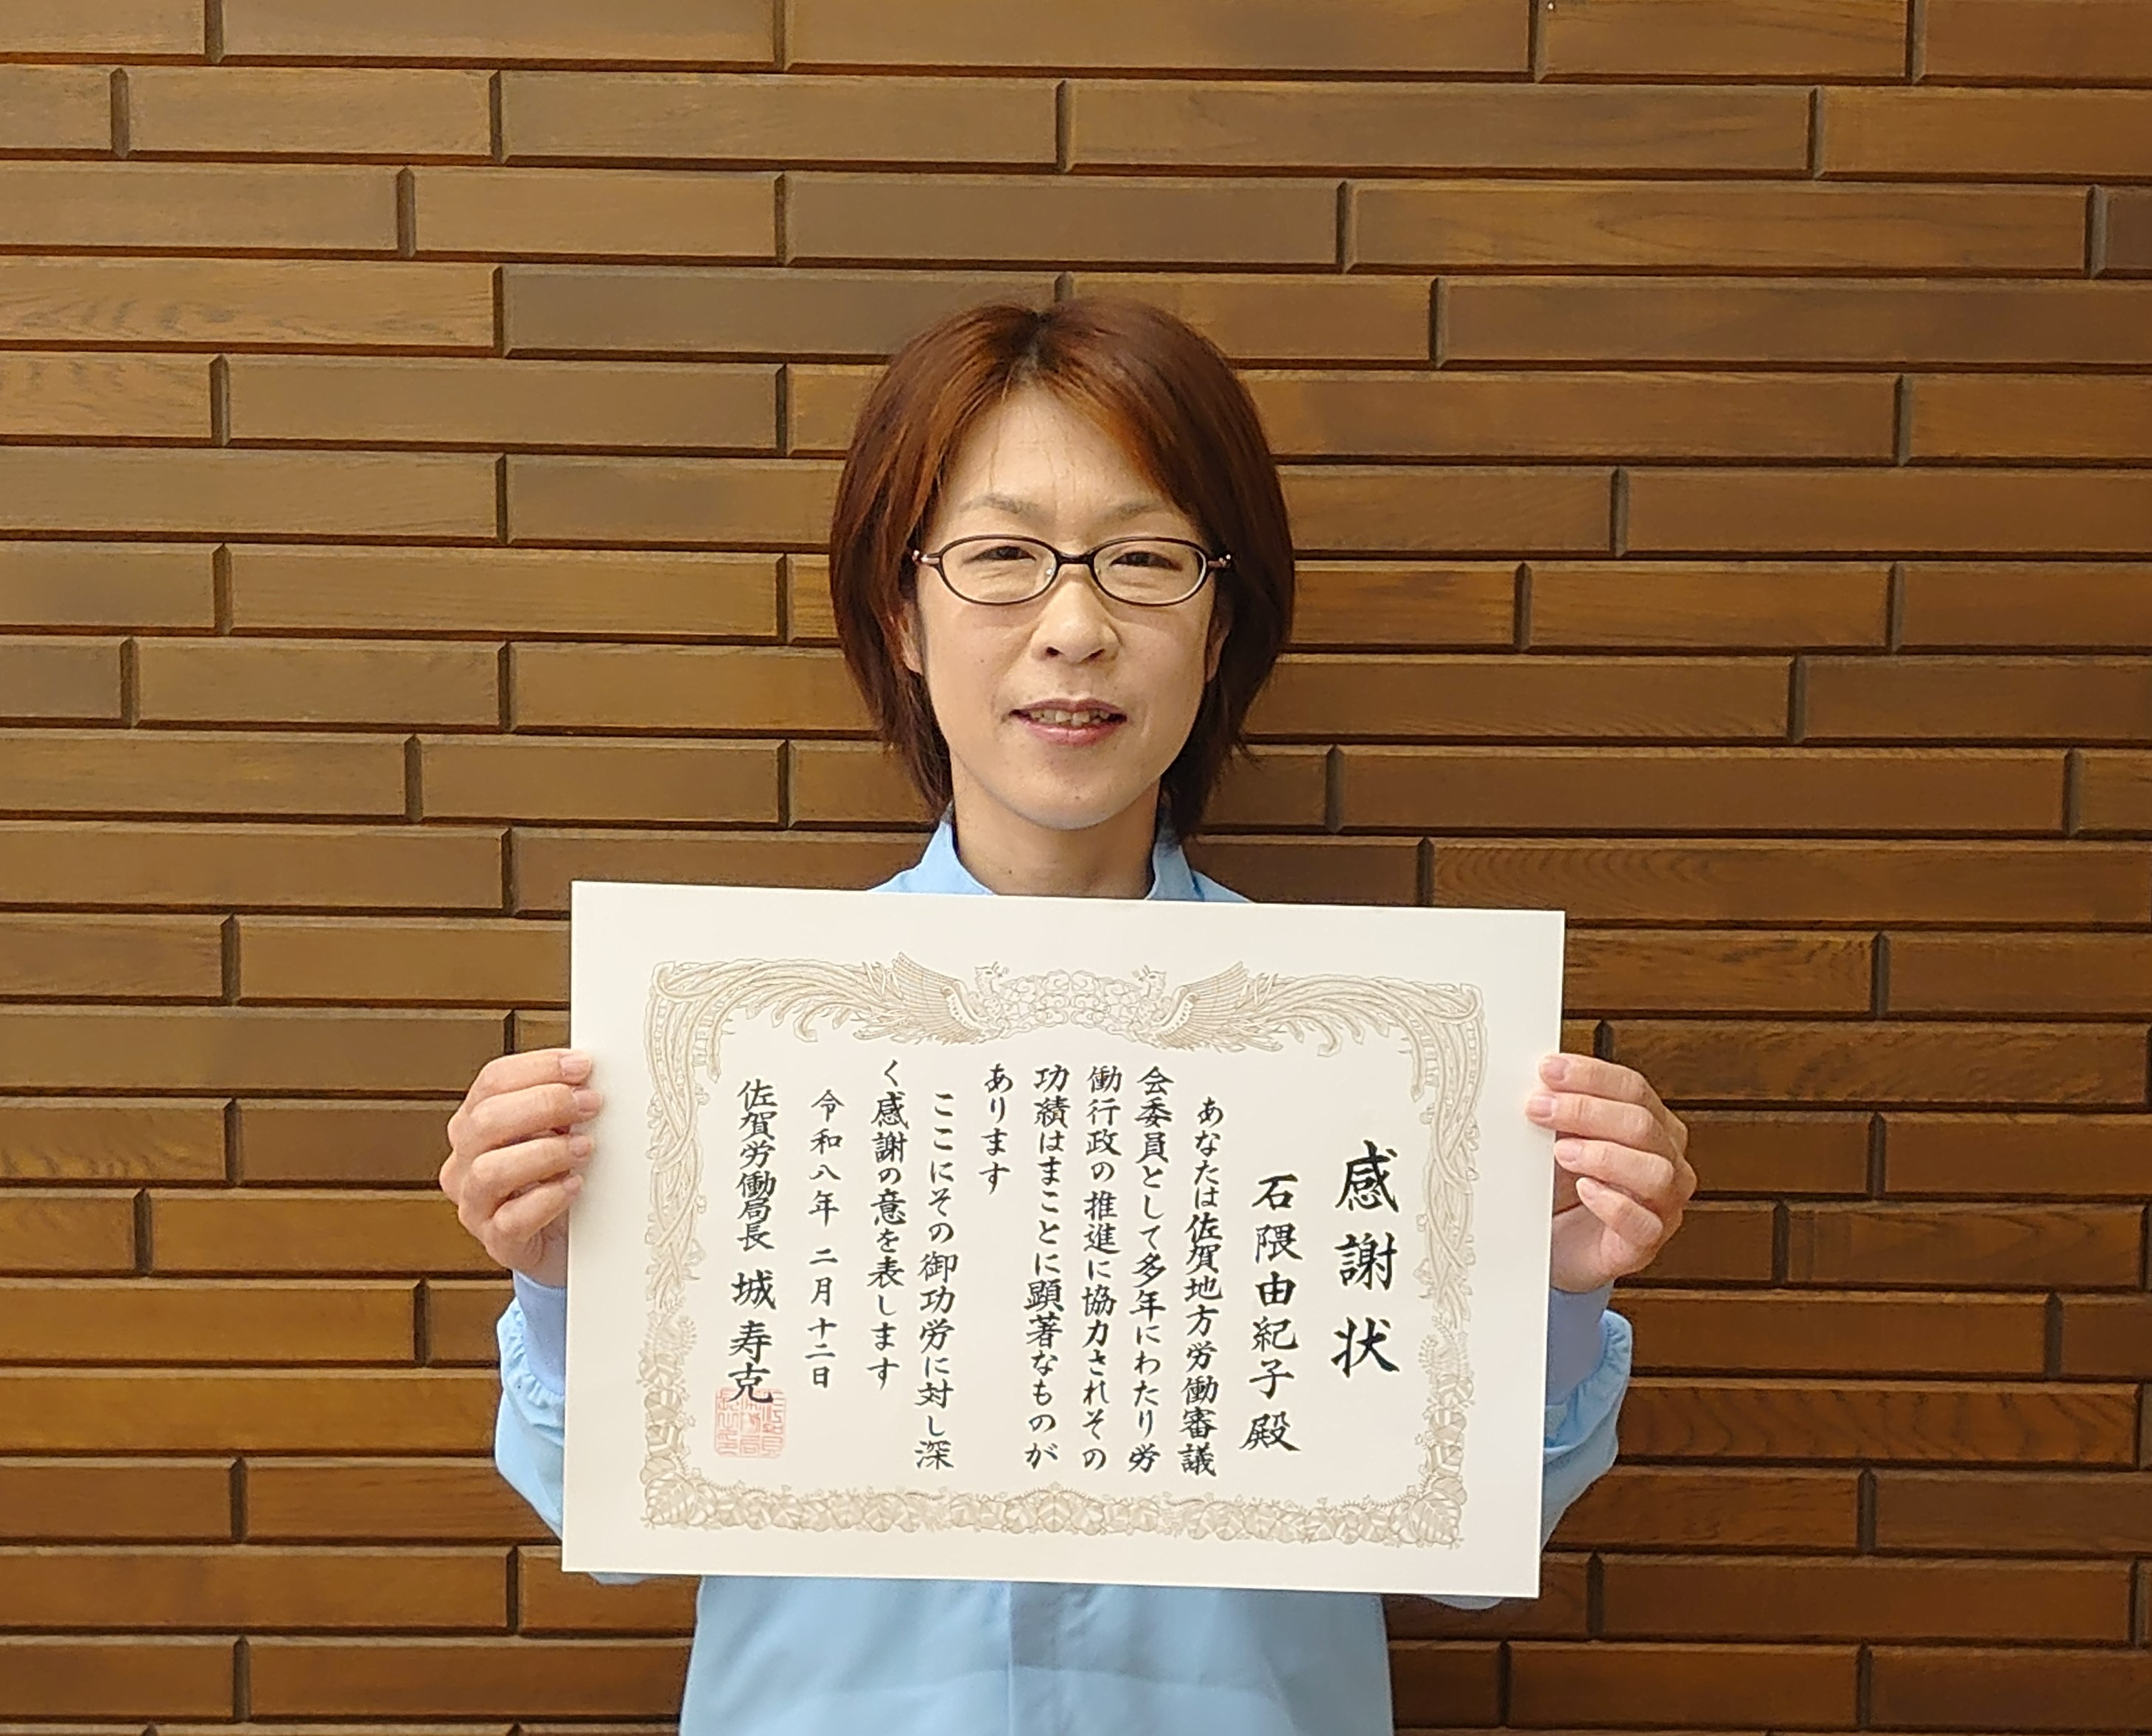 感謝状
石隈由紀子殿
あなたは佐賀地方労働審議
会委員として多年にわたり労
働行政の推進に協力されその
功績はまことに顕著なものが
あります
ここにその御功労に対し深
く感謝の意を表します
令和八年二月十二日
佐賀労働局長 城寿克